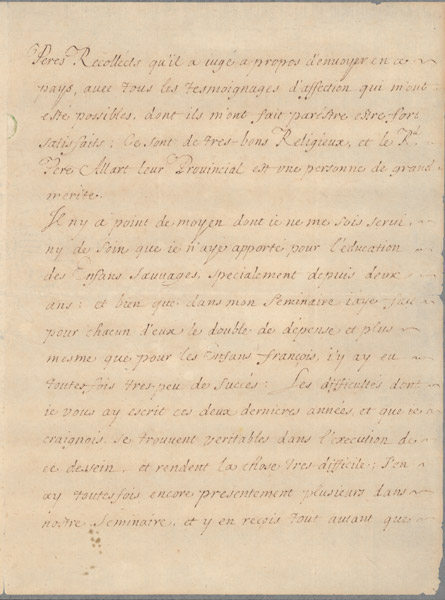 Peres Recollects qu'il a iugé a propos d'envoyer en ce
pays, avec tous les tesmoignages d'affection qui m'ont
esté possibles, dont ils m'ont fait parestre estre fort
satisfaits: Ce sont de tres-bons Religieux, et le Rd
Pere Allart leur Provincial est une personne de grand
merite.
Il ny a point de moyen dont ie ne me sois servi
ny de soin que ie n'aye apporté pour l'éducation
des Enfans sauvages, specialement depuis deux
ans: et bien que dans mon seminaire i'aye fait
pour chacun d'eux le double de dépense et plus
mesme que pour les Enfans françois, i'y ay eu
toutesfois tres peu de succés: Les difficultés dont
ie vous ay escrit ces deux dernieres années, et que ie
craignois se trouvent veritables dans l'execution de
ce dessein, et rendent la chose tres difficile; J'en
ay toutesfois encore presentement plusieurs dans
nostre seminaire, et y en reçois tout autant que